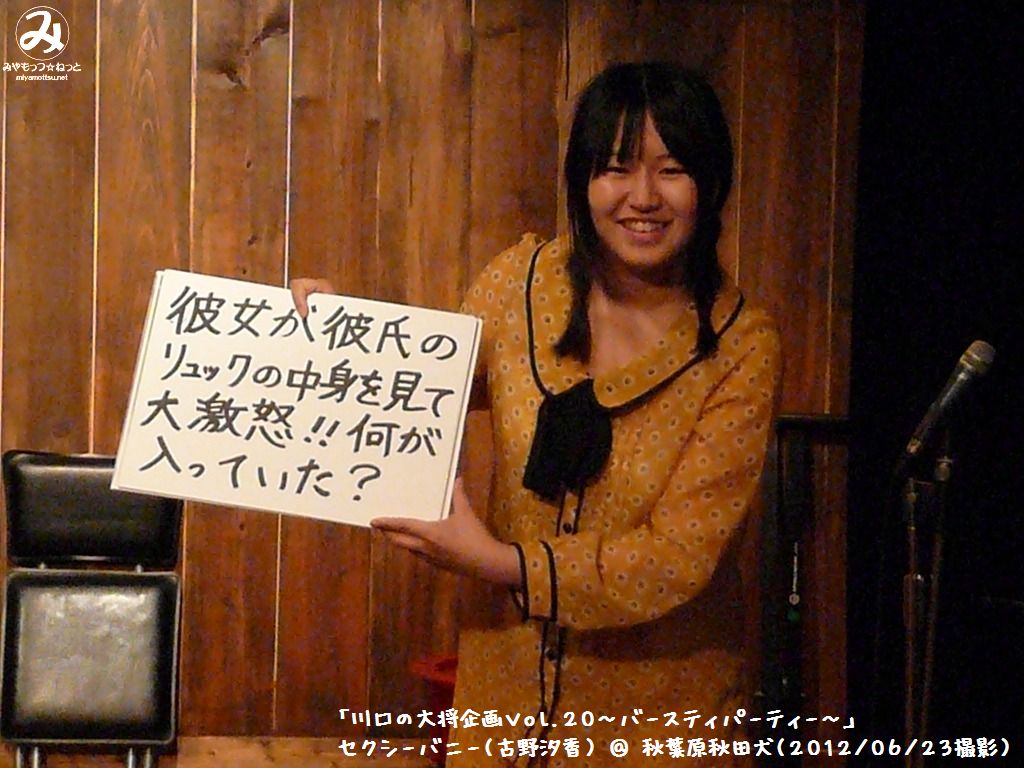 み
みやもっつ☆ねっと
miyamottsu.net
彼女が彼氏の
リュックの中身を見て
大激怒!!何が
入っていた？
「川口の大将企画Vol.20～バースティパーティー～」
セクシーバニー(古野汐香) @ 秋葉原秋田犬(2012/06/23撮影)